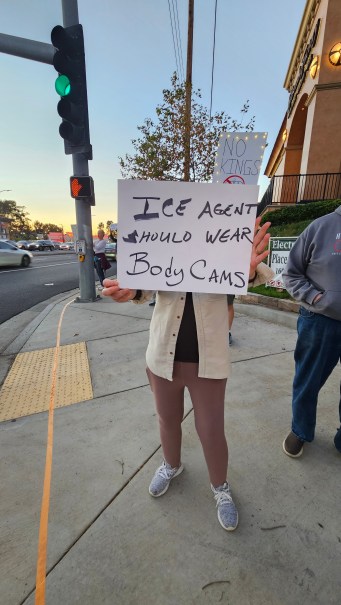 NO
KINGS
ICE AGENT
SHOULD WEAR
Body Cams
Electr
Place